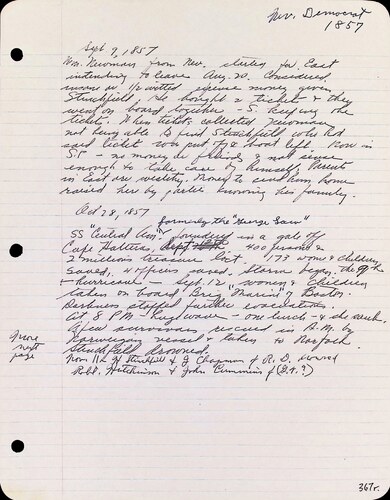 Nev. Democrat
1857
Sept 9, 1857
Wm. Newman from Nev. starting for East
intending to leave Aug. 20. Considered
insane or 1/2 witted expense money given
Stuchfield, He bought a ticket & they
went on board together - S. keeping the
ticket. When tickets collected Newman
not being able to find Stuchfield who had
said ticket was put off & boat left. Now in
S.F. - no money or friends & not sense
enough to take care of himself. Parents
in East are wealthy. Money to send him home
raised here by parties knowing his family.
Oct 28, 1857
formerly the "George Law"
SS "Central Am" foundered in a gale off
Cape Hatteras, 400 persons &
2 millions treasure lost. 173 wom & children
saved, 4 officers saved. Storm began the 9th
hurricane - Sept. 12 women & children
taken on board Brig "Marine" of Boston.
Darkness stopped further
At 8 P.M. huge wave - one lunch - & she sank
A few survivors rescued in A.M. by
Norwegian vessel & taken to Norfolk
Stuchfield drowned.
From H. Stuchfield & J Chapman & R. D.
Robt. Hutchinson & John Cummins
more
next
page
367r.